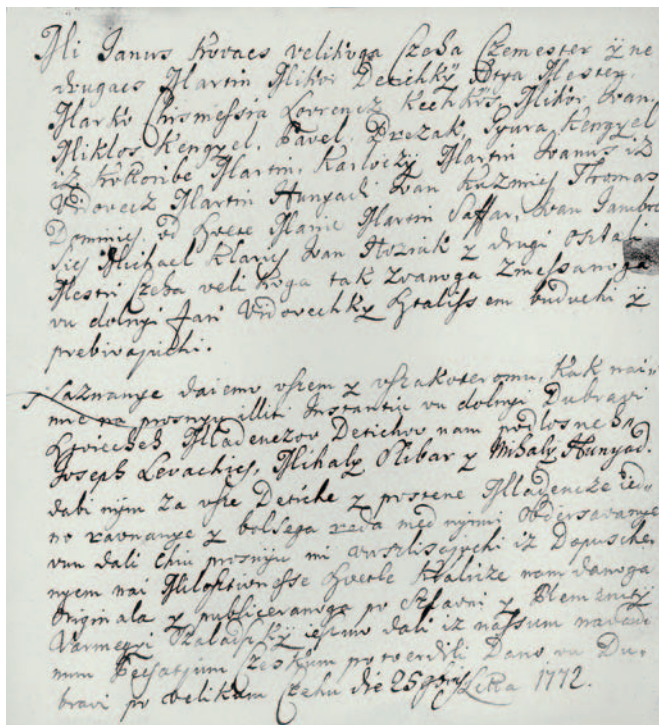 Mi Janus Kovacs velikoga Czeha Czemester ÿ ne
drugacs Martin Mikor Detichkÿ Attya Mester,
Marko Chismessia Lovrencz Kechkÿs, Mikor Ivan,
Miklos Kengyel, Pavel Prezak, Gyura Kengyel
iz Krkoribe Martin, Karloczÿ Martin Ivanus iz
Vidovecz Martin Hunyadi Ivan Kuzmics Thomas
Dominics, od Szvete Marie Martin Saffar, Ivan Jambro
sics Michael Klarics Ivan Noziak y drugi ostali
Mestri Czeha velikoga tak zvanoga Zmessanoga
vu dolnyi Fari Vidovechky Sztalissem buduchi ÿ
prebivajuchi.
Zaznanye daiemo vszem y vszakoteromu, kak nai-
mre na prosnyu illiti Instantiu vu dolnyi Dubravi
Mladenczov Detichov nam podlosneh
Joseph Levachics, Mihaly Slibar y Mihaly Hunyad.
dabi nyim za vsze Detiche y postene Mladencze ied-
no ravnanye y bolsega reda med nyimi obdersavanye
vun dali chiu prosnyu mi vuszlisajuchi iz Dopusche-
nyem nai Milosztivnesse Szvetle Kralicze nam danoga
Originala y publiceranoga po Szlavni y Plemeniti
Varmegyi Szaladszkÿ ieszmo dali iz nassum navad-
num Pechatjum Czeskum potverdili Dano vu Du-
bravi po velikum Czehu die 25 Szlika 1772.